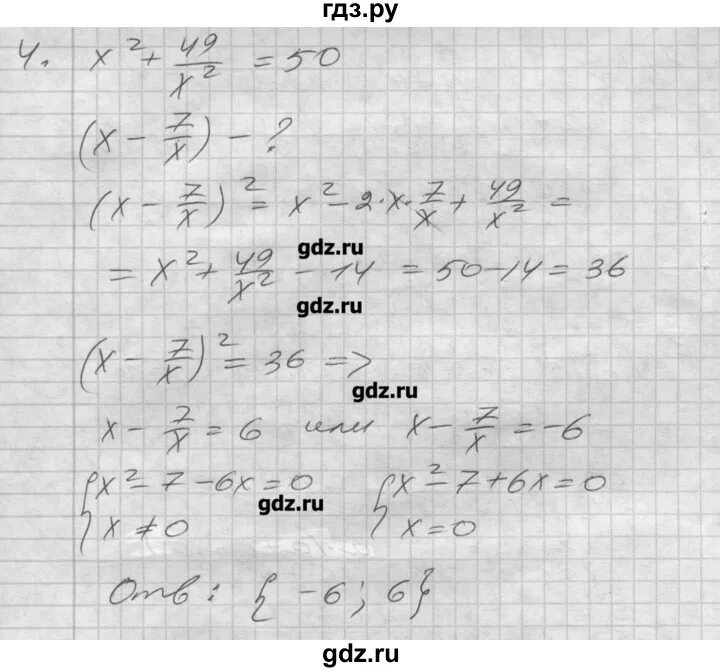 гдз.ру
4. x² + 49/x² = 50
(x - 7/x) - ?
(x - 7/x)² = x² - 2·x·7/x + 49/x² =
gdz.ru
= x² + 49/x² - 14 = 50 - 14 = 36
gdz.ru
(x - 7/x)² = 36 =>
gdz.ru
x - 7/x = 6 или x - 7/x = -6
{x² - 7 - 6x = 0 {x² - 7 + 6x = 0
gdz.ru
x ≠ 0 x = 0
Отв: {-6; 6}
gdz.ru